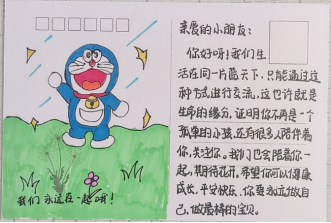 我们永远在一起哦!
亲爱的小朋友:
你好呀!我们生
活在同一片蓝天下,只能通过这
种方式进行交流,这也许就是
生命的缘分,证明你不再是一个
孤单的小孩,还有很多人陪伴着
你,关注你。我们也会陪着你一
起,期待花开,希望你可以健康
成长,平安快乐,你要永远做自
己,做最棒的宝贝。